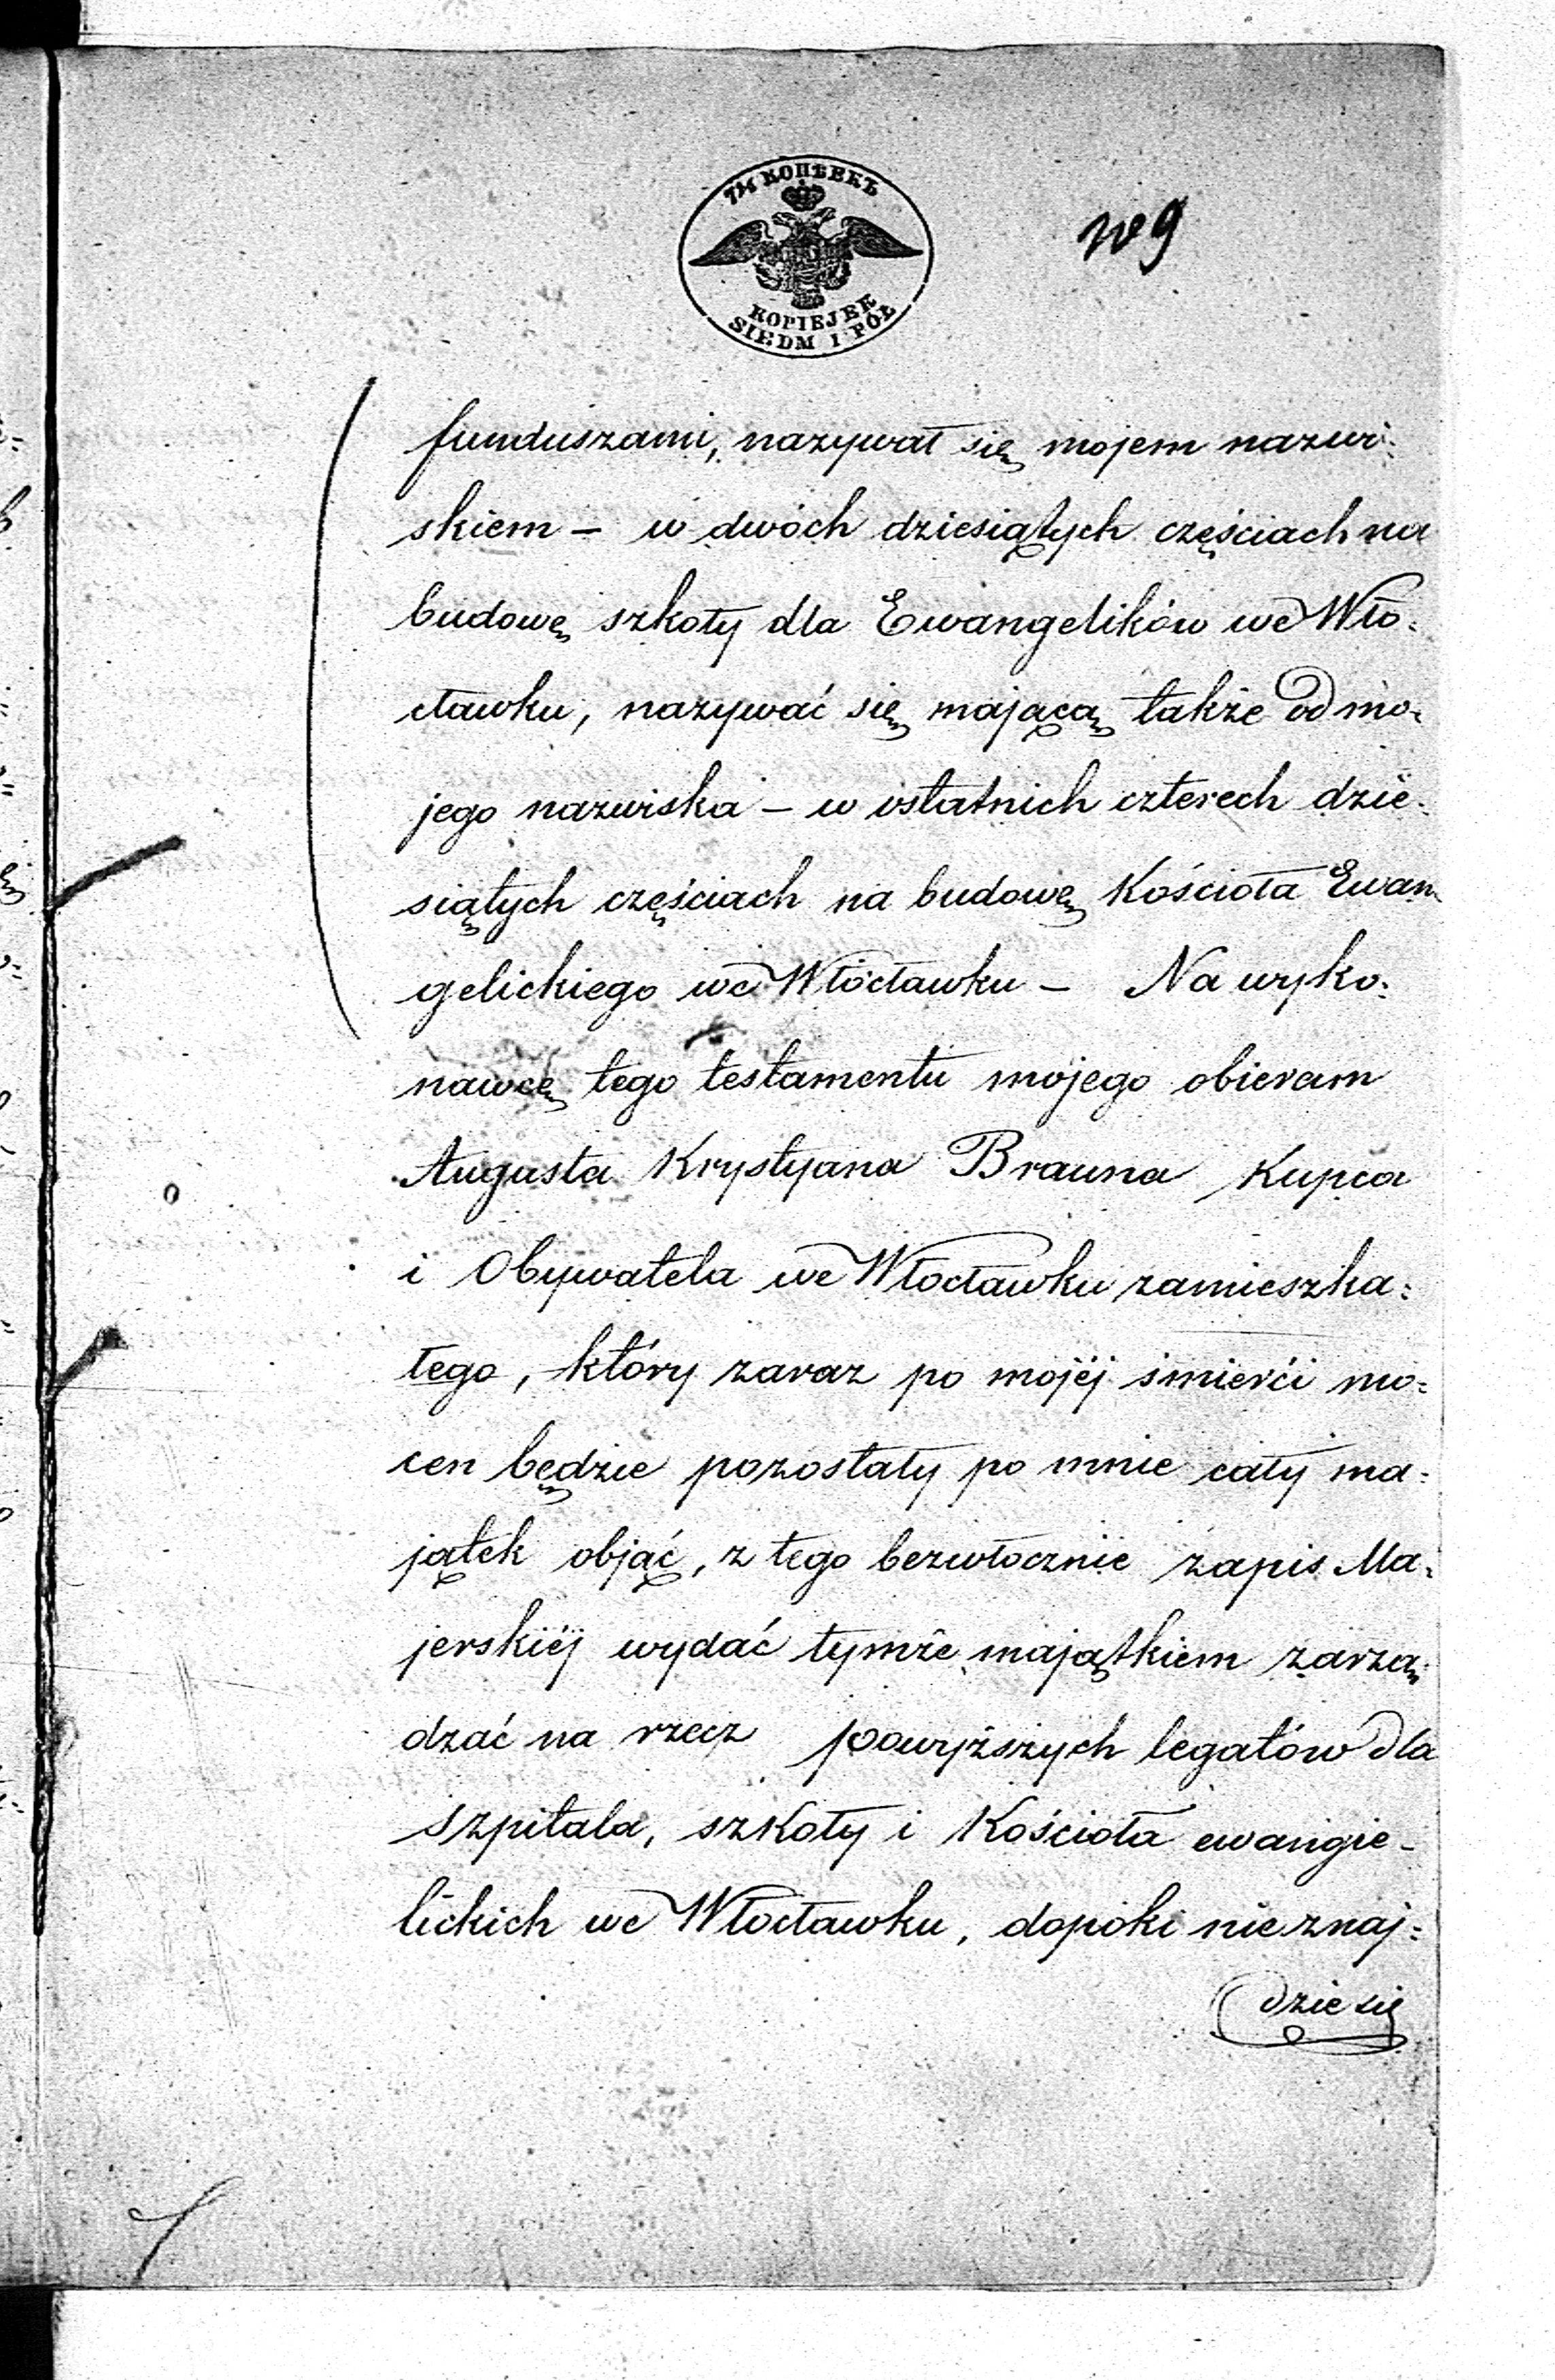 7½ КОПѢЕКЪ
KOPIEJEK
SIEDM I PÓŁ
funduszami, nazywał się mojem nazwi:
skiem – w dwóch dziesiątych częściach na
budowę szkoły dla Ewangelików we Wło:
cławku, nazywać się mającą także od mo:
jego nazwiska – w ostatnich czterech dzie:
siątych częściach na budowę Kościoła Ewan
gelickiego we Włocławku – Na wyko:
nawcę tego testamentu mojego obieram
Augusta Krystyana Brauna Kupca
i Obywatela we Włocławku zamieszka:
łego, który zaraz po mojéj śmierći mo:
cen będzie pozostały po mnie cały ma:
jątek objąć, z tego bezwłocznie zapis Ma:
jerskiéj wydać tymże majątkiem zarzą:
dzać na rzecz powyższych legatów dla
szpitala, szkoły i Kościoła ewangie-
lickich we Włocławku, dopóki nie znaj:
dzie się